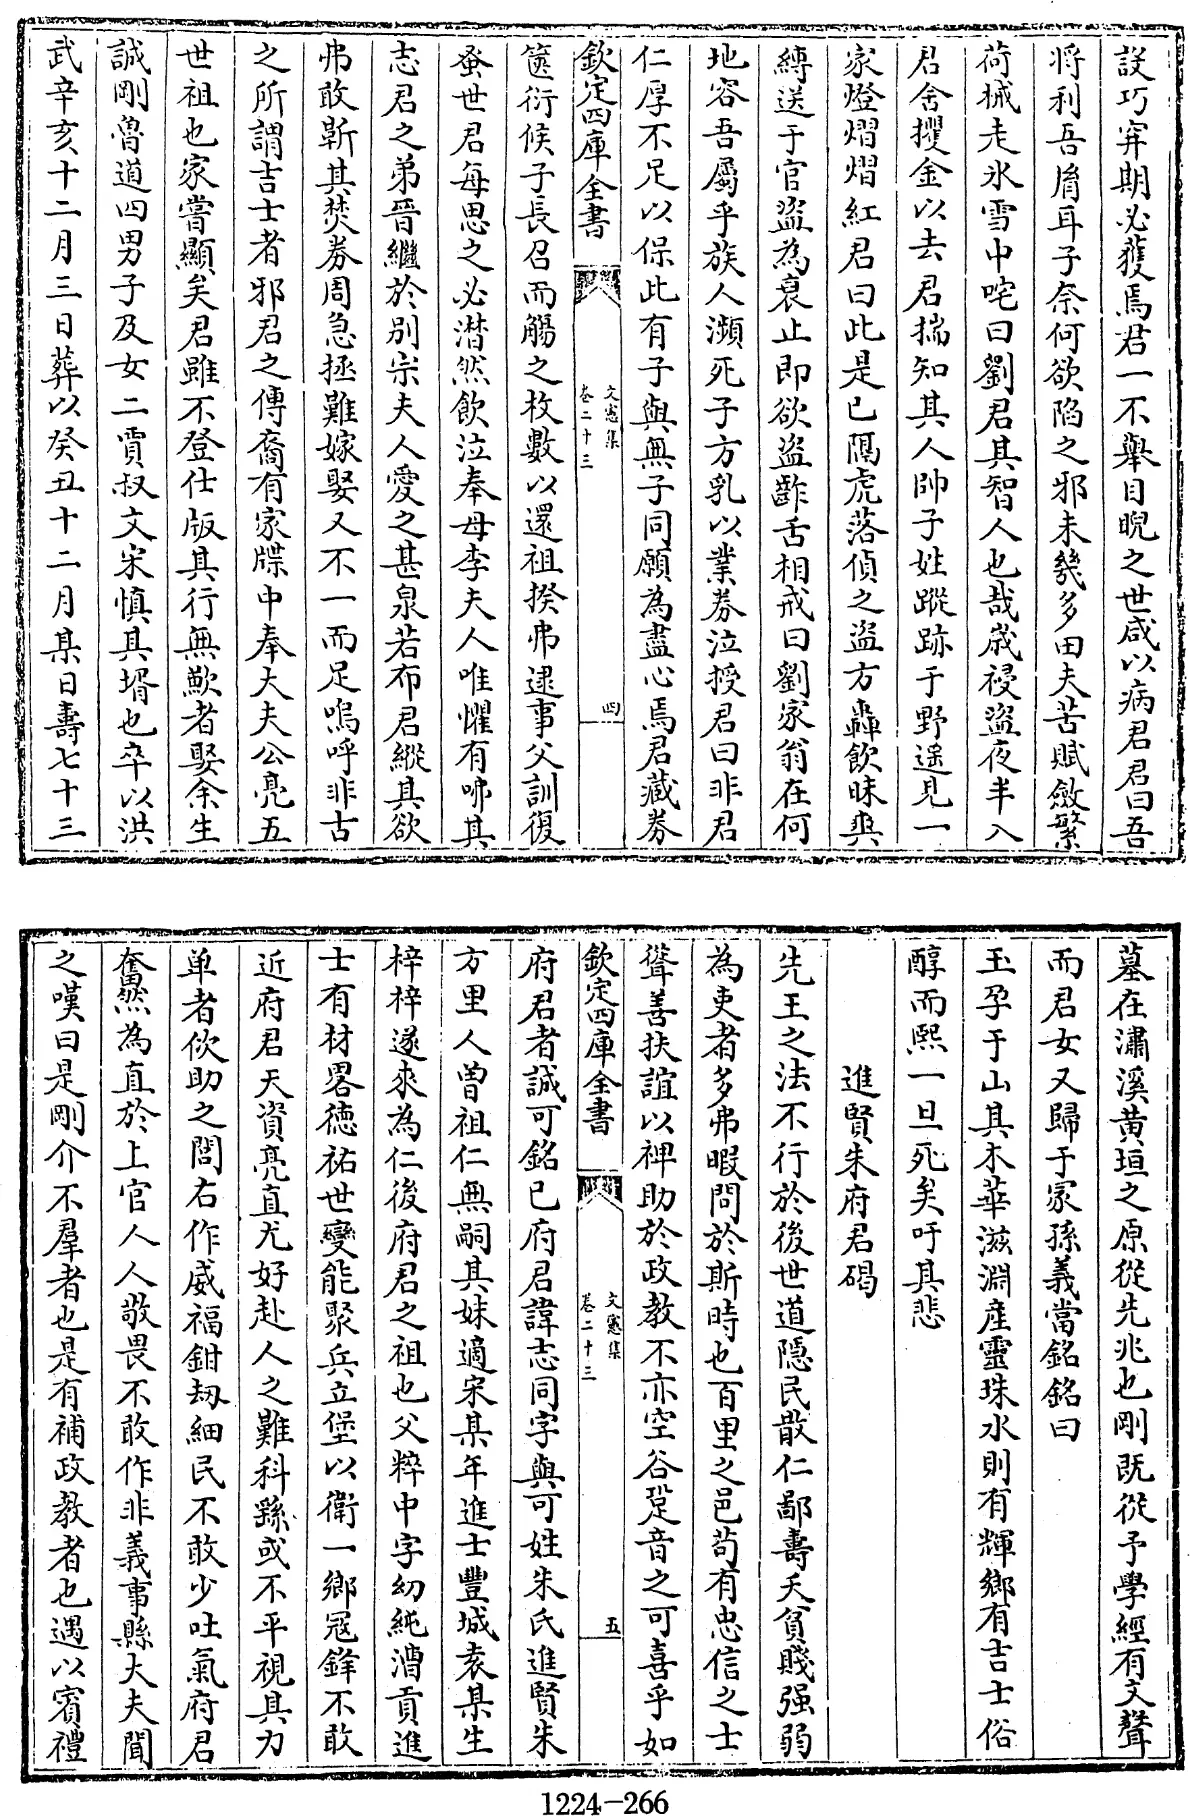 設巧穽期必獲焉君一不舉目睨之世咸以病君君曰吾
將利吾胷耳子奈何欲陷之邪未幾多田夫苦賦斂繁
荷械走氷雪中咤曰劉君其智人也哉歳祲盜夜半入
君舍攫金以去君揣知其人帥子姓蹤跡于野遥見一
家燈熠熠紅君曰此是已隅虎落偵之盜方轟飲昧爽
縛送于官盜為衰止即欲盜齚舌相戒曰劉家翁在何
地容吾屬乎族人瀕死子方乳以業券泣授君曰非君
仁厚不足以保此有子與無子同願為盡心焉君藏券
欽定四庫全書
文憲集
卷二十三
四
篋衍候子長召而觴之枚數以還祖揆弗逮事父訓復
蚤世君毎思之必潸然飲泣奉母李夫人唯懼有咈其
志君之弟晉繼於別宗夫人愛之甚泉若布君縱其欲
弗敢靳其焚券周急拯難嫁娶又不一而足嗚呼非古
之所謂吉士者邪君之傳裔有家牒中奉大夫公亮五
世祖也家嘗顯矣君雖不登仕版其行無歉者娶余生
誠剛魯道四男子及女二賈叔文宋慎其壻也卒以洪
武辛亥十二月三日葬以癸丑十二月某日壽七十三
墓在潚溪黄垣之原從先兆也剛既從予學經有文聲
而君女又歸于冡孫義當銘銘曰
玉孕于山其木華滋淵産靈珠水則有輝鄉有吉士俗
醇而熙一旦死矣吁其悲
進賢朱府君碣
先王之法不行於後世道隠民散仁鄙夀夭貧賤强弱
為吏者多弗暇問於斯時也百里之邑茍有忠信之士
聳善扶誼以裨助於政教不亦空谷跫音之可喜乎如
欽定四庫全書
文憲集
卷二十三
五
府君者誠可銘已府君諱志同字與可姓朱氏進賢朱
方里人曾祖仁無嗣其妹適宋某年進士豐城袁某生
梓梓遂來為仁後府君之祖也父粹中字幼純漕貢進
士有材畧徳祐世變能聚兵立堡以衛一鄉冦鋒不敢
近府君天資亮直尤好赴人之難科繇或不平視其力
单者佽助之閭右作威福鉗刼細民不敢少吐氣府君
奮然為直於上官人人敬畏不敢作非義事縣大夫聞
之嘆曰是剛介不羣者也是有補政教者也遇以賓禮
1224-266